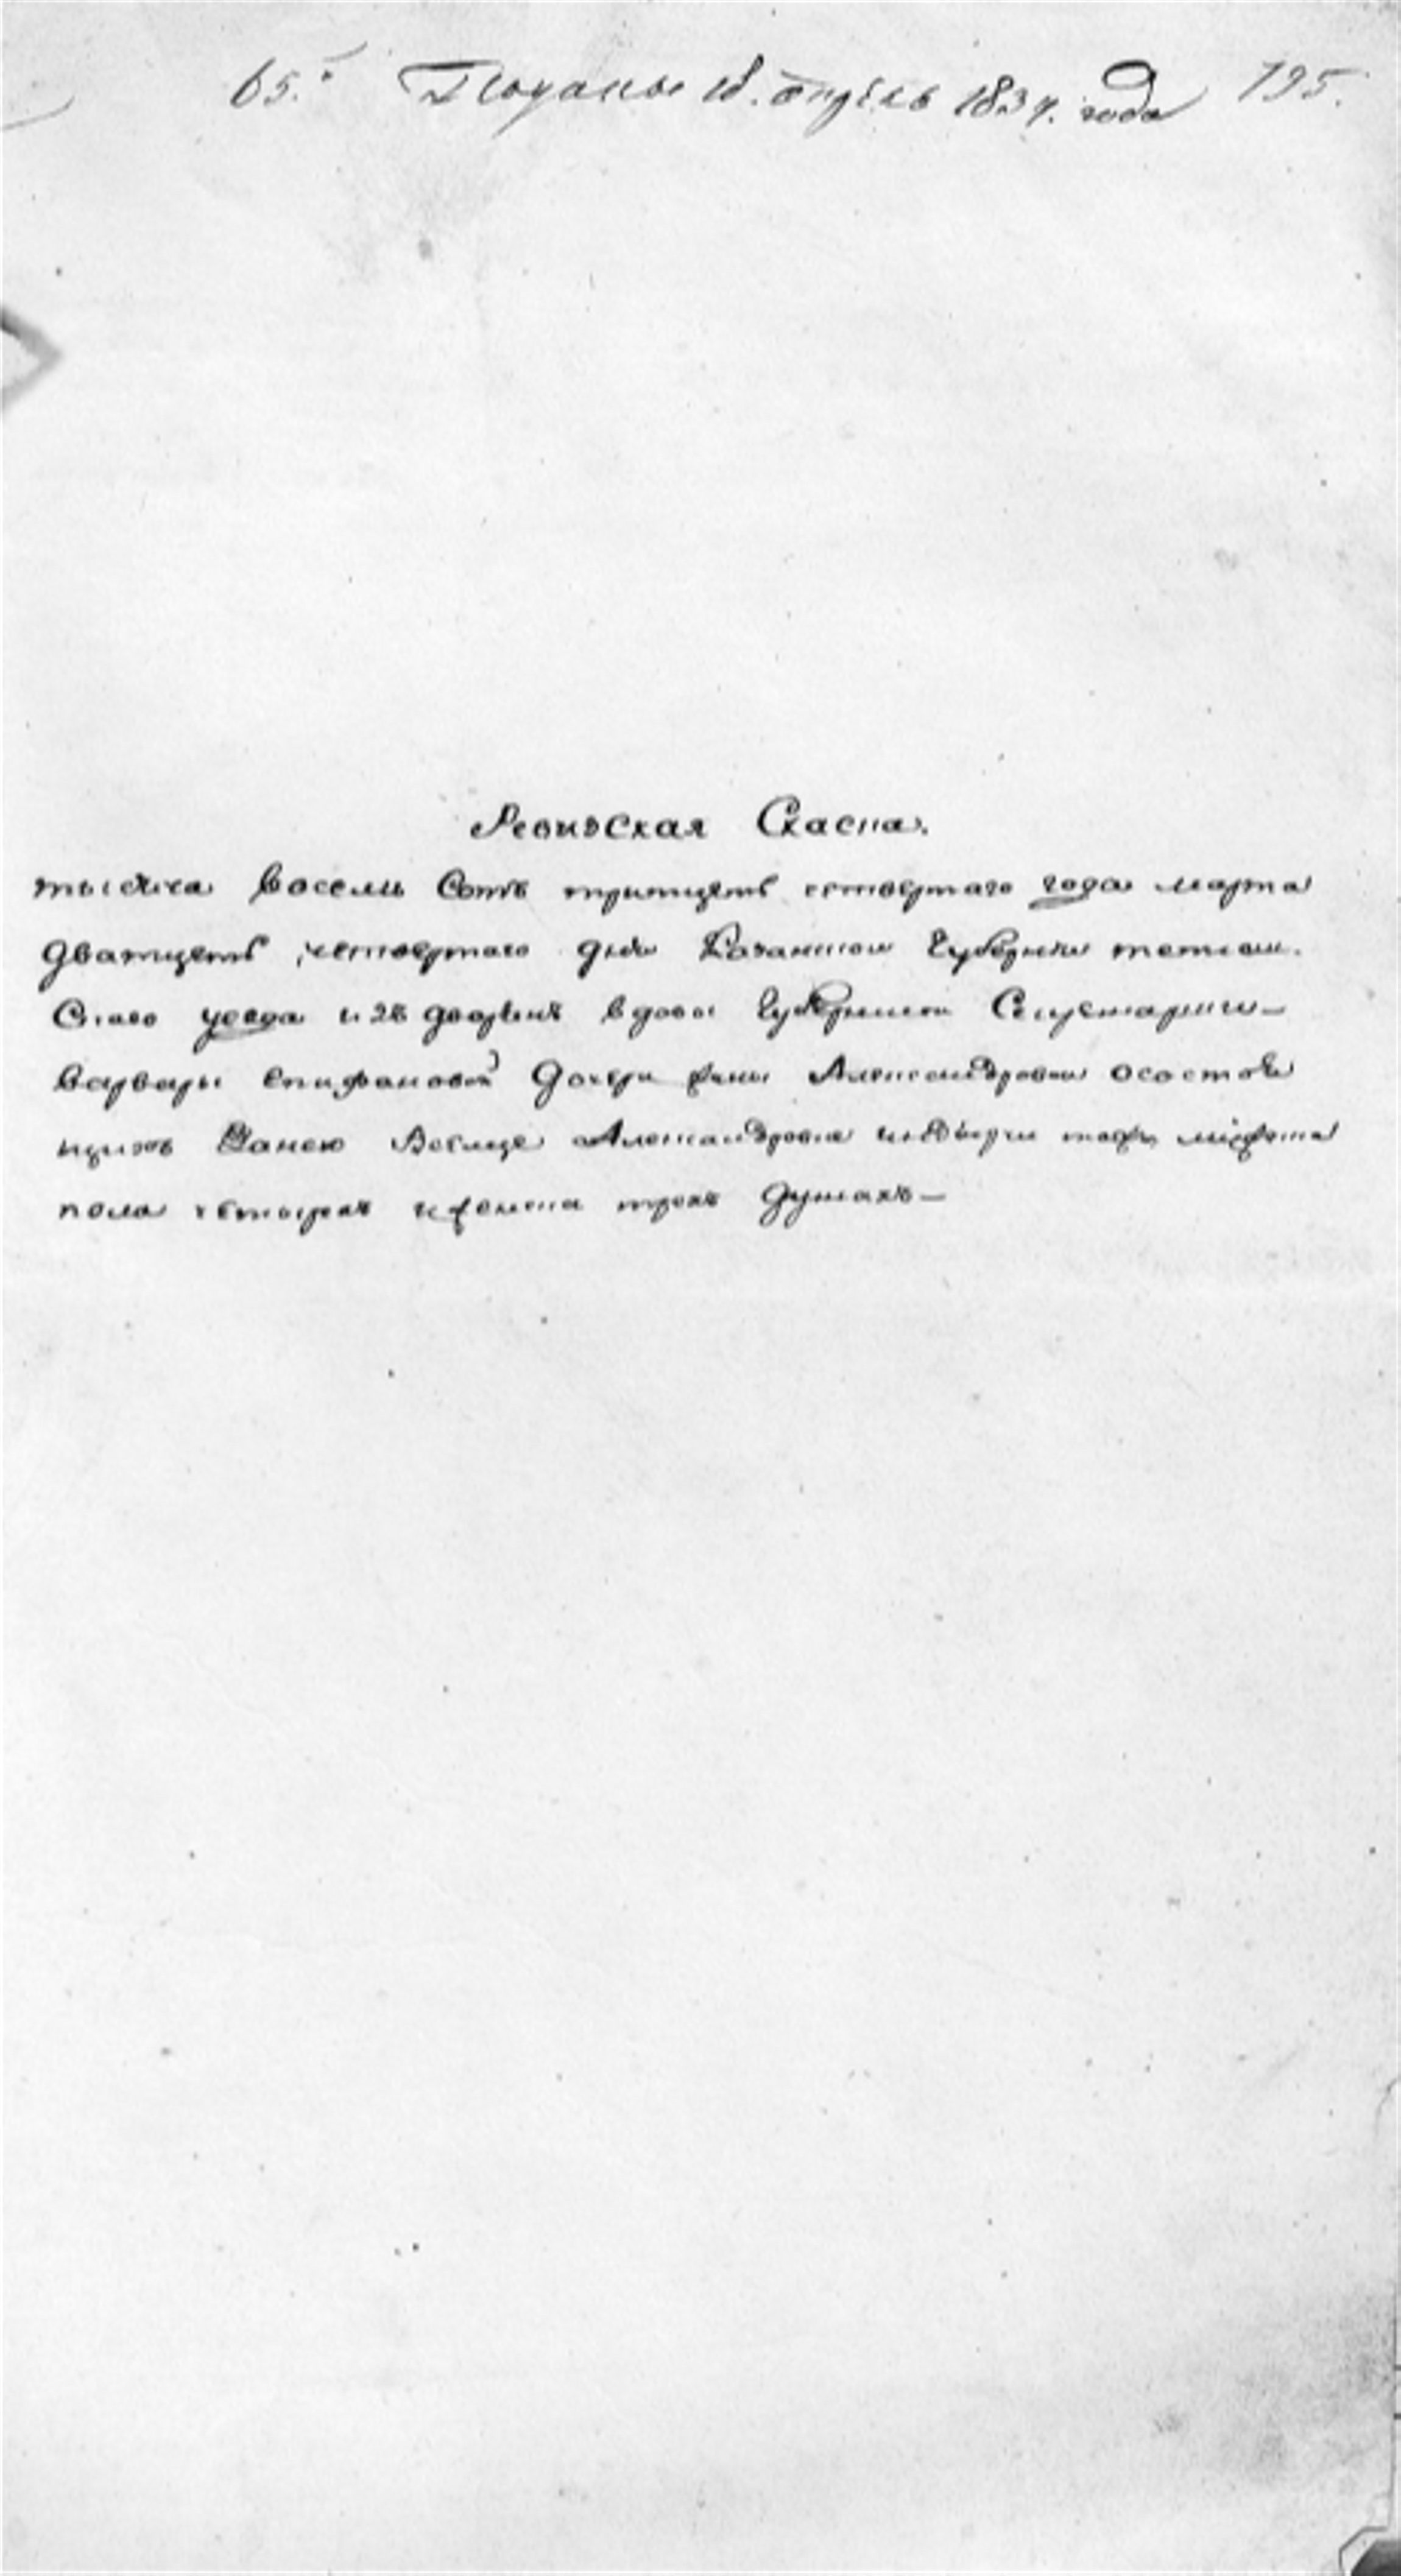 65. Подана 18. апреля 1834. года 195.
Ревизская Скаска.
тысяча восемь Сотъ тритцеть четвертаго года марта
дватцеть четвертаго дня Казанской Губернии тетюш.
Скаго уезда изъ дворянъ вдовы Губернской Секретарши
варвары епифановой Дочери Анны Александровны осостоя
щихъ Занею Александровне мужеска
пола четырехъ и женска трехъ Душахъ